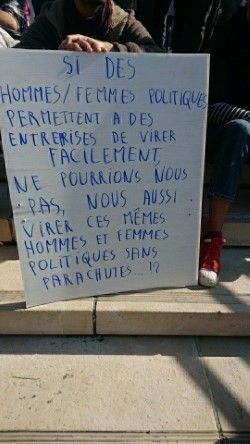 SI DES
HOMMES/FEMMES POLITIQUES
PERMETTENT A DES
ENTREPRISES DE VIRER
FACILEMENT,
NE POURRIONS NOUS
PAS, NOUS AUSSI
VIRER CES MÊMES
HOMMES ET FEMMES
POLITIQUES SANS
PARACHUTES...!?